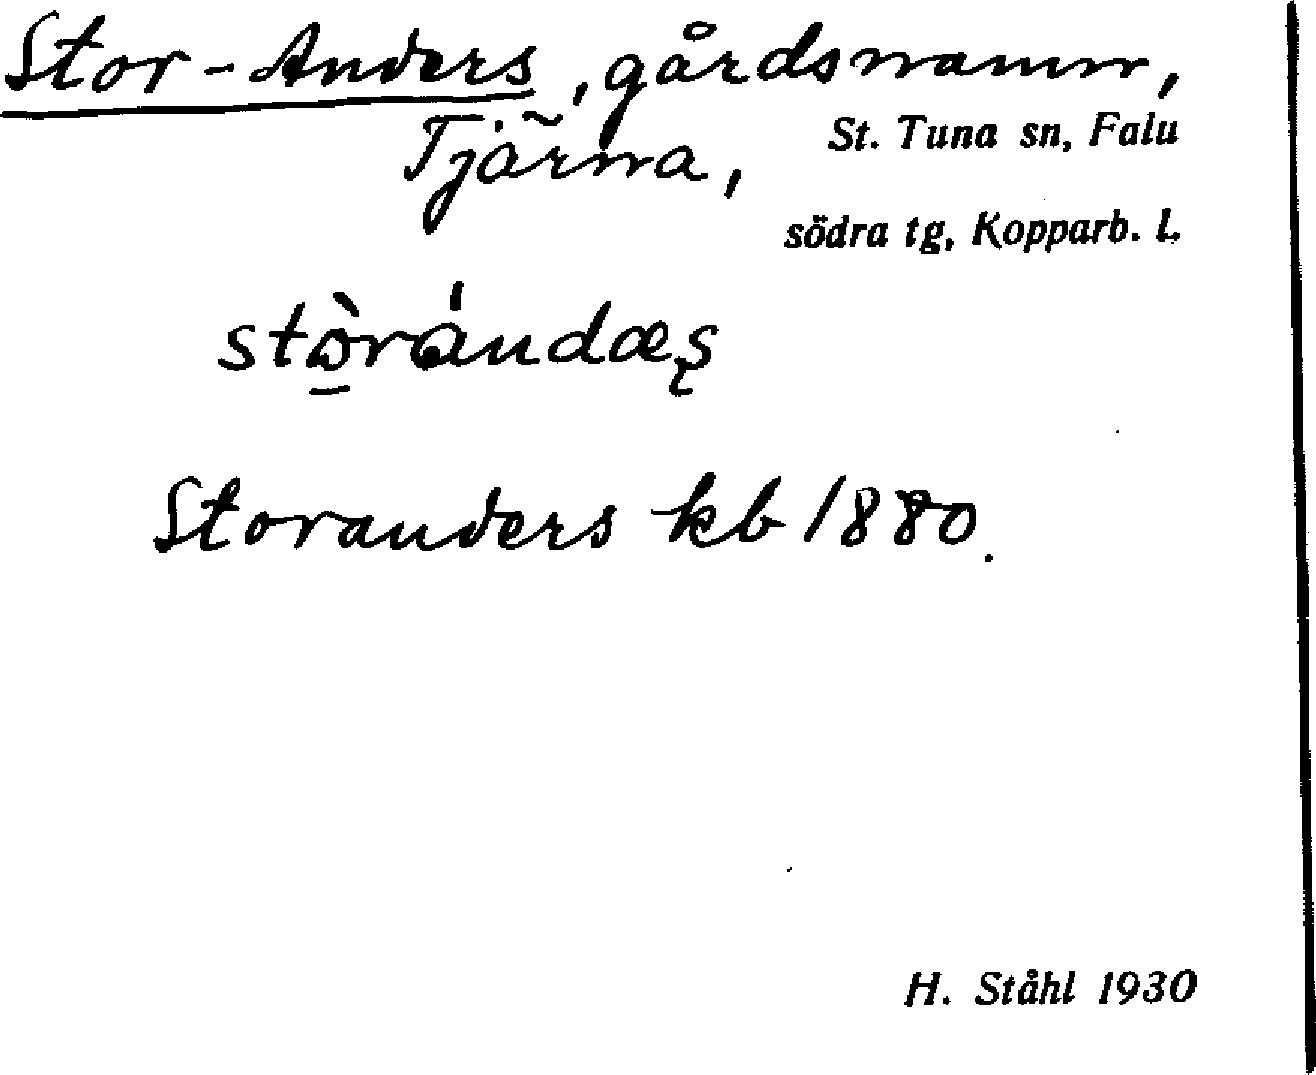 Stor-Anders, gårdsnamn,
Tjärna, St. Tuna sn, Falu
södra tg, Kopparb. l.
stòrándæs
Storanders kb 1880.
H. Ståhl 1930